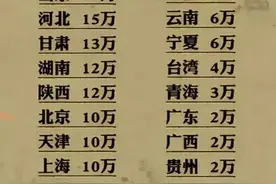 河北 15万
甘肃 13万
湖南 12万
陕西 12万
北京 10万
天津 10万
上海 10万
云南 6万
宁夏 6万
台湾 4万
青海 3万
广东 2万
广西 2万
贵州 2万